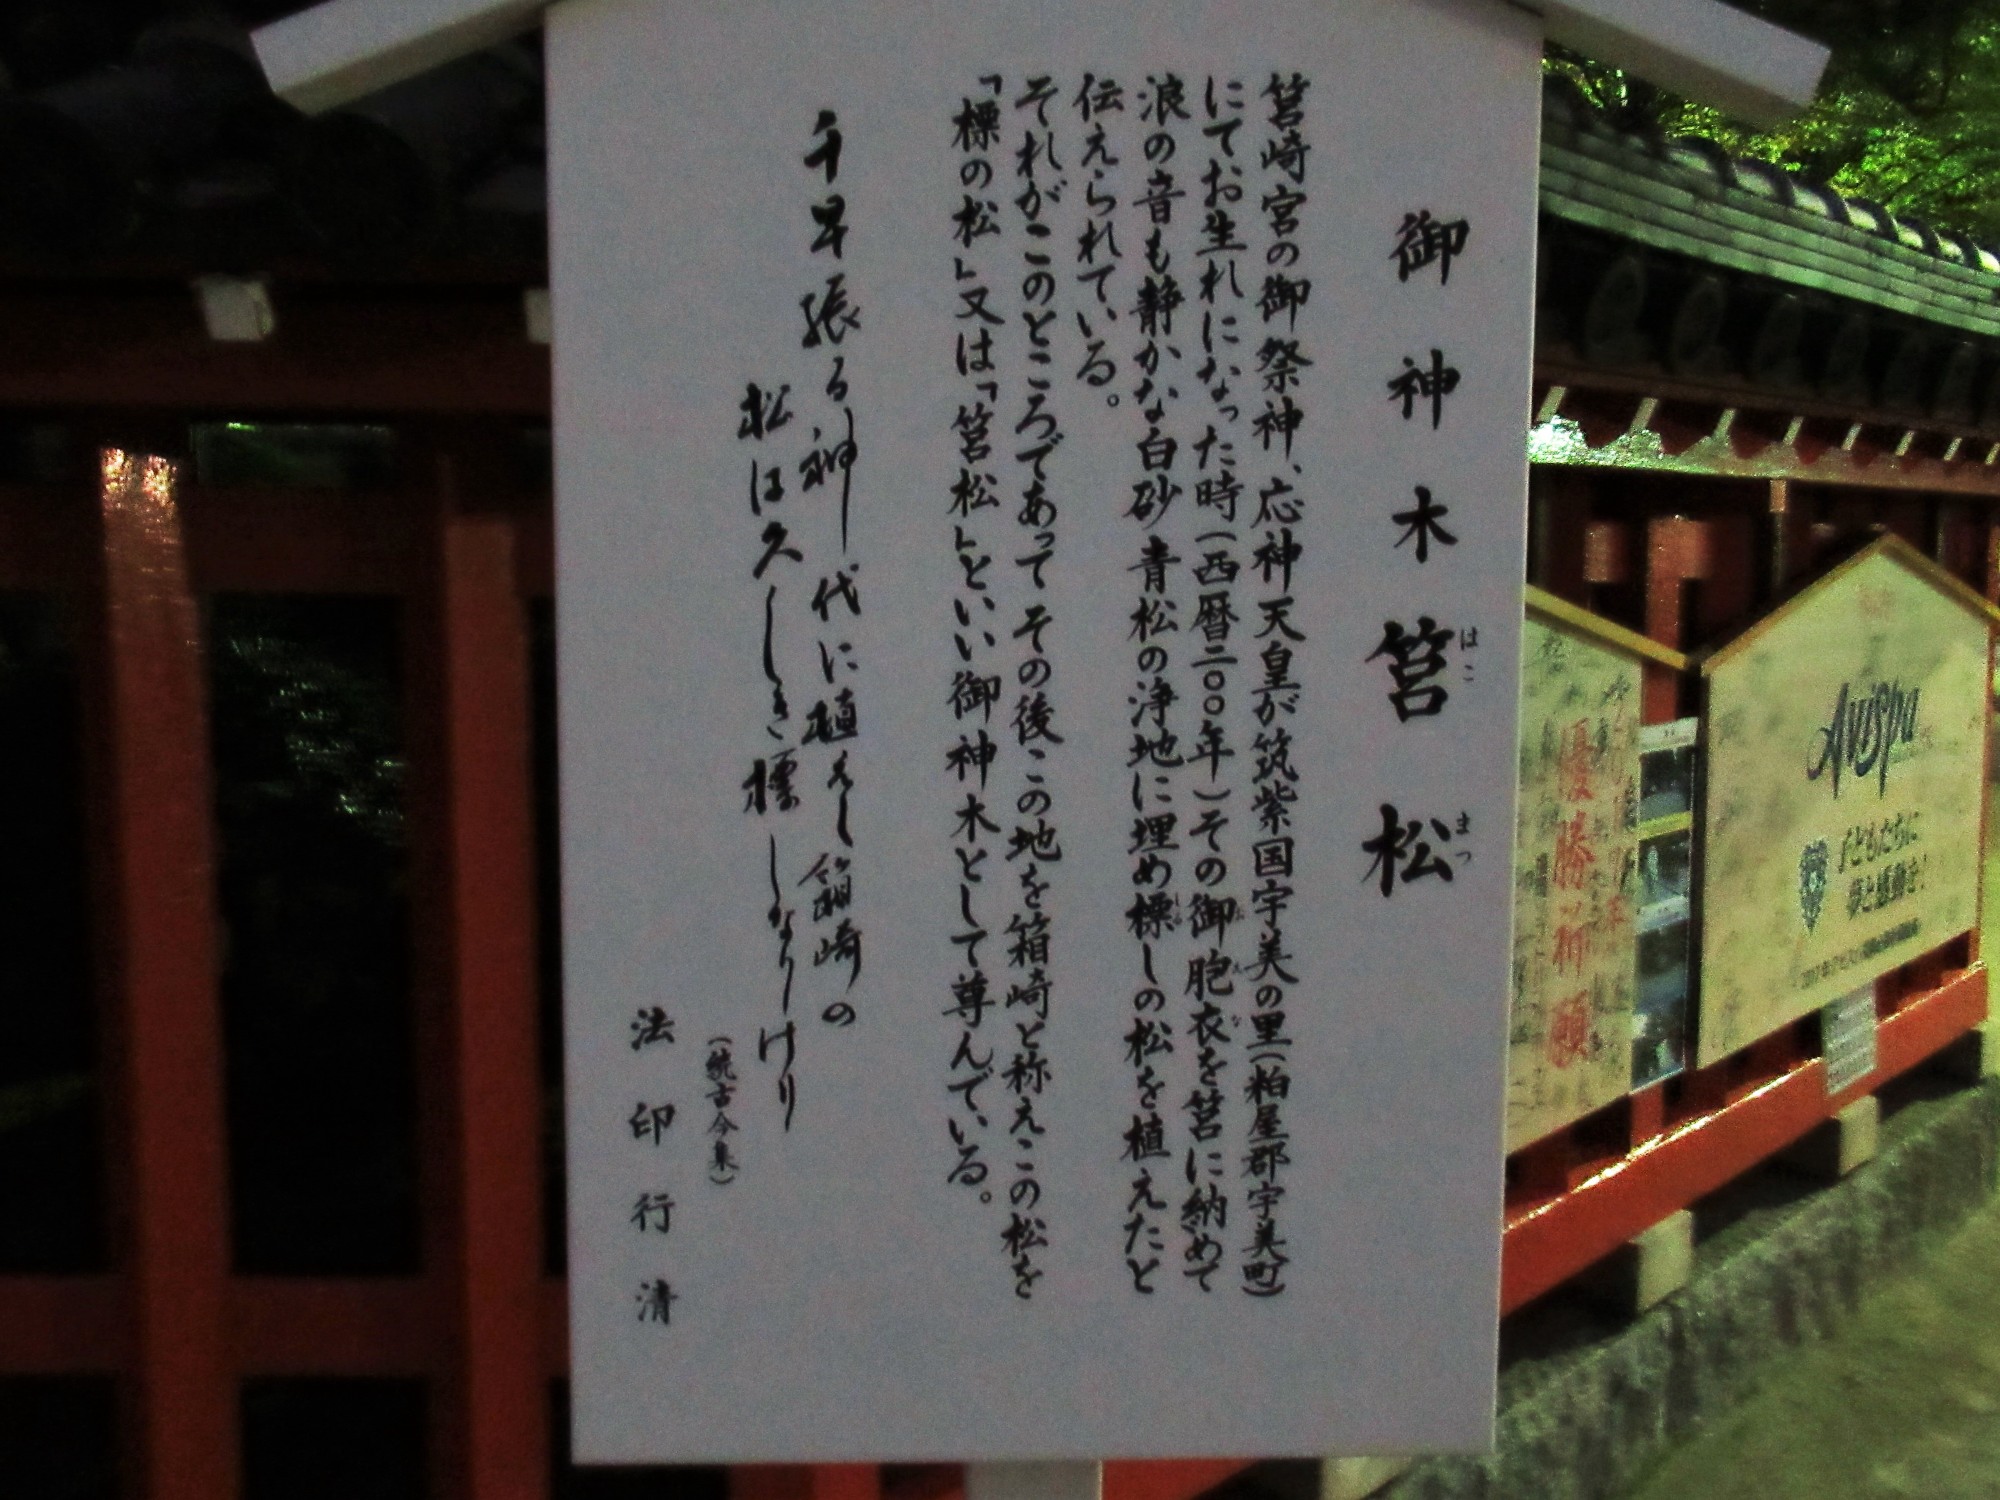 御神木筥松
はこ
まつ
筥崎宮の御祭神、応神天皇が筑紫国宇美の里(粕屋郡宇美町)
にてお生れになった時(西暦二〇〇年)その御胞衣を筥に納めて
お
え
な
浪の音も静かな白砂青松の浄地に埋め標しの松を植えたと
しる
伝えられている。
それがこのところであってその後この地を箱崎と称えこの松を
「標の松」又は「筥松」といい御神木として尊んでいる。
千早振る神代に植えし箱崎の
松は久しき標しなりけり
(続古今集)
法印行清
優勝祈願
Avispa
子どもたちに
夢と感動を!